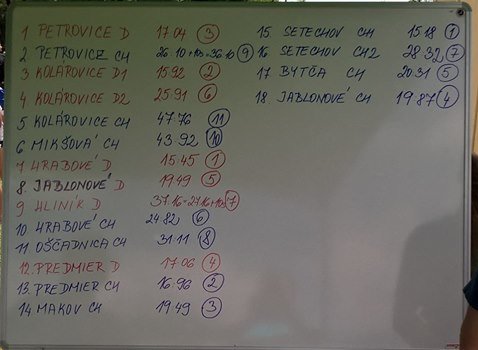 1 PETROVICE D 17.04 3
2 PETROVICE CH 26.10+10s=36.10 9
3 KOLÁROVICE D1 15.92 2
4 KOLÁROVICE D2 25.91 6
5 KOLÁROVICE CH 47.76 11
6 MIKŠOVÁ CH 43.92 10
7 HRABOVÉ D 15.45 1
8. JABLONOVÉ D 19.49 5
9 HLINÍK D 37.16=27.16+10s 7
10 HRABOVÉ CH 24.82 6
11 OŠČADNICA CH 31.11 8
12. PREDMIER D 17.06 4
13. PREDMIER CH 16.96 2
14 MAKOV CH 19.49 3
15. SETECHOV CH 15.18 1
16 SETECHOV CH2 28.32 7
17 BYTČA CH 20.31 5
18 JABLONOVÉ CH 19.87 4